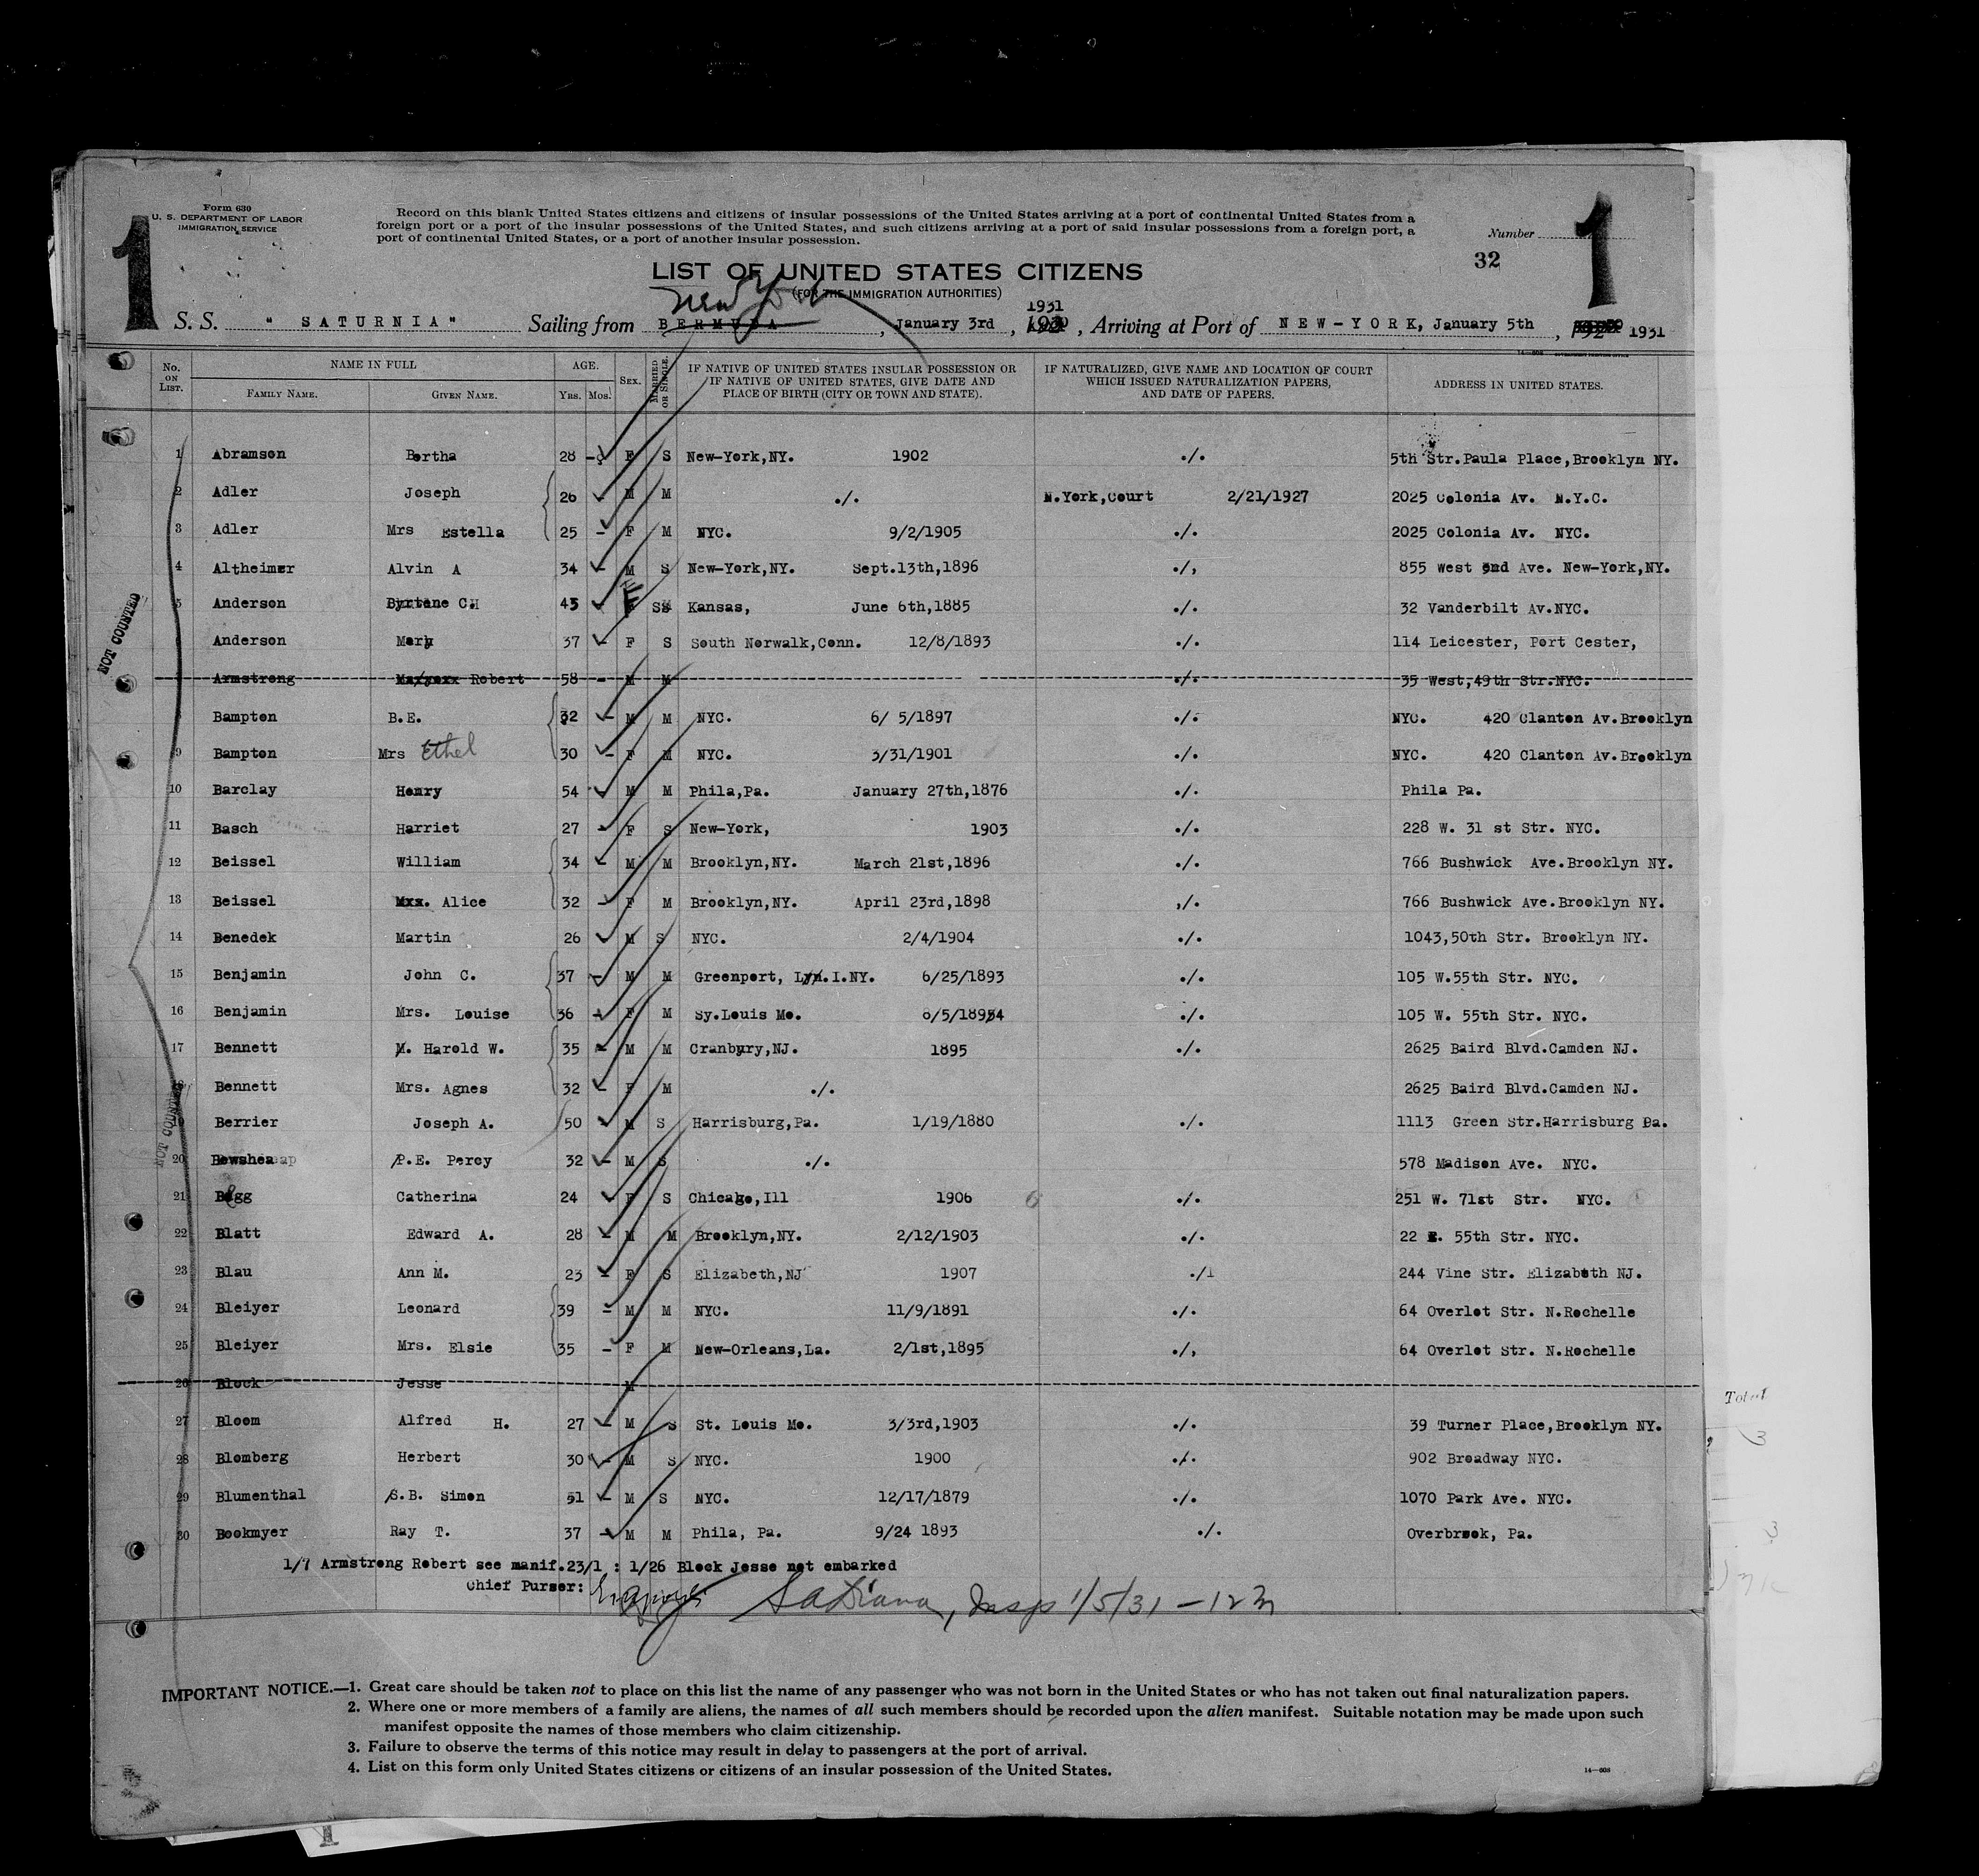 Form 630
U. S. DEPARTMENT OF LABOR
IMMIGRATION SERVICE
1
1
Record on this blank United States citizens and citizens of insular possessions of the United States arriving at a port of continental United States from a
foreign port or a port of the insular possessions of the United States, and such citizens arriving at a port of said insular possessions from a foreign port, a
port of continental United States, or a port of another insular possession.
Number
32
LIST OF UNITED STATES CITIZENS
(FOR THE IMMIGRATION AUTHORITIES)
New York
S. S. " SATURNIA " Sailing from BERMUDA, January 3rd, 1931, Arriving at Port of NEW-YORK, January 5th, 1931
No. ON LIST. NAME IN FULL AGE. SEX. MARRIED OR SINGLE. IF NATIVE OF UNITED STATES INSULAR POSSESSION OR IF NATIVE OF UNITED STATES, GIVE DATE AND PLACE OF BIRTH (CITY OR TOWN AND STATE). IF NATURALIZED, GIVE NAME AND LOCATION OF COURT WHICH ISSUED NATURALIZATION PAPERS, AND DATE OF PAPERS. ADDRESS IN UNITED STATES.
FAMILY NAME. GIVEN NAME. Yrs. Mos.
1 Abramson Bertha 28 - F S New-York,NY. 1902 ./. 5th Str.Paula Place,Brooklyn NY.
2 Adler Joseph 26 - M M ./. N.York,Court 2/21/1927 2025 Colonia Av. N.Y.C.
3 Adler Mrs Estella 25 - F M NYC. 9/2/1905 ./. 2025 Colonia Av. NYC.
4 Altheimer Alvin A 34 - M S New-York,NY. Sept.13th,1896 ./, 855 West End Ave. New-York,NY.
5 Anderson C. 45 - F S Kansas, June 6th,1885 ./. 32 Vanderbilt Av.NYC.
6 Anderson Mary 37 - F S South Norwalk,Conn. 12/8/1893 ./. 114 Leicester, Port Cester,
Armstrong Robert 58 - M M ./. 35 West,49th Str.NYC.
8 Bampton B.E. 32 - M M NYC. 6/ 5/1897 ./. NYC. 420 Clanton Av.Brooklyn
9 Bampton Mrs Ethel 30 - F M NYC. 3/31/1901 ./. NYC. 420 Clanton Av.Brooklyn
10 Barclay Henry 54 - M M Phila,Pa. January 27th,1876 ./. Phila Pa.
11 Basch Harriet 27 - F S New-York, 1903 ./. 228 W. 31 st Str. NYC.
12 Beissel William 34 - M M Brooklyn,NY. March 21st,1896 ./. 766 Bushwick Ave.Brooklyn NY.
13 Beissel Alice 32 - F M Brooklyn,NY. April 23rd,1898 ,/. 766 Bushwick Ave.Brooklyn NY.
14 Benedek Martin 26 - M S NYC. 2/4/1904 ./. 1043,50th Str. Brooklyn NY.
15 Benjamin John C. 37 - M M Greenport, L.I.NY. 6/25/1893 ./. 105 W.55th Str. NYC.
16 Benjamin Mrs. Louise 36 - F M Sy.Louis Mo. 8/5/1894 ./. 105 W. 55th Str. NYC.
17 Bennett M. Harold W. 35 - M M Cranbury,NJ. 1895 ./. 2625 Baird Blvd.Camden NJ.
18 Bennett Mrs. Agnes 32 - F M ./. 2625 Baird Blvd.Camden NJ.
19 Berrier Joseph A. 50 - M S Harrisburg,Pa. 1/19/1880 ./. 1113 Green Str.Harrisburg Pa.
20 Bewsheaap P.E. Percy 32 - M S ./. 578 Madison Ave. NYC.
21 Begg Catherina 24 - F S Chicago,Ill 1906 ./. 251 W. 71st Str. NYC.
22 Blatt Edward A. 28 - M M Brooklyn,NY. 2/12/1903 ./. 22 E. 55th Str. NYC.
23 Blau Ann M. 23 - F S Elizabeth,NJ 1907 ./1 244 Vine Str. Elizabeth NJ.
24 Bleiyer Leonard 39 - M M NYC. 11/9/1891 ./. 64 Overlot Str. N.Rochelle
25 Bleiyer Mrs. Elsie 35 - F M New-Orleans,La. 2/1st,1895 ./, 64 Overlot Str. N.Rochelle
26 Block Jesse M
27 Bloom Alfred H. 27 - M S St. Louis Mo. 3/3rd,1903 ./. 39 Turner Place,Brooklyn NY.
28 Blomberg Herbert 30 - M S NYC. 1900 ./. 902 Broadway NYC.
29 Blumenthal S.B. Simon 51 - M S NYC. 12/17/1879 ./. 1070 Park Ave. NYC.
30 Bookmyer Ray T. 37 - M M Phila, Pa. 9/24 1893 ./. Overbrook, Pa.
NOT COUNTED
NOT COUNTED
1/7 Armstrong Robert see manif.23/1 : 1/26 Block Jesse not embarked
Chief Purser:
Insp 1/5/31 - 12
IMPORTANT NOTICE.—1. Great care should be taken not to place on this list the name of any passenger who was not born in the United States or who has not taken out final naturalization papers.
2. Where one or more members of a family are aliens, the names of all such members should be recorded upon the alien manifest. Suitable notation may be made upon such
manifest opposite the names of those members who claim citizenship.
3. Failure to observe the terms of this notice may result in delay to passengers at the port of arrival.
4. List on this form only United States citizens or citizens of an insular possession of the United States.
14—608
Total
3
3